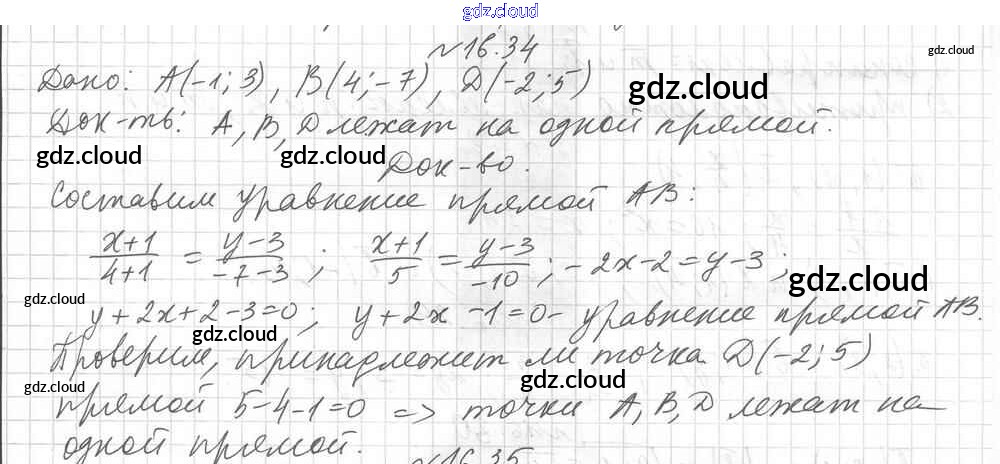 gdz.cloud
№16.34
gdz.cloud
Дано: A(-1; 3), B(4; -7), D(-2; 5)
gdz.cloud
Док-ть: A, B, D лежат на одной прямой.
gdz.cloud
gdz.cloud
gdz.cloud
Док-во.
Составим уравнение прямой AB:
(x+1)/(4+1) = (y-3)/(-7-3) ; (x+1)/5 = (y-3)/(-10) ; -2x-2=y-3 ;
gdz.cloud
gdz.cloud
y+2x+2-3=0; y+2x-1=0- уравнение прямой AB.
gdz.cloud
Проверим, принадлежит ли точка D(-2; 5)
gdz.cloud
gdz.cloud
прямой 5-4-1=0 => точки A, B, D лежат на
одной прямой.
№16.35